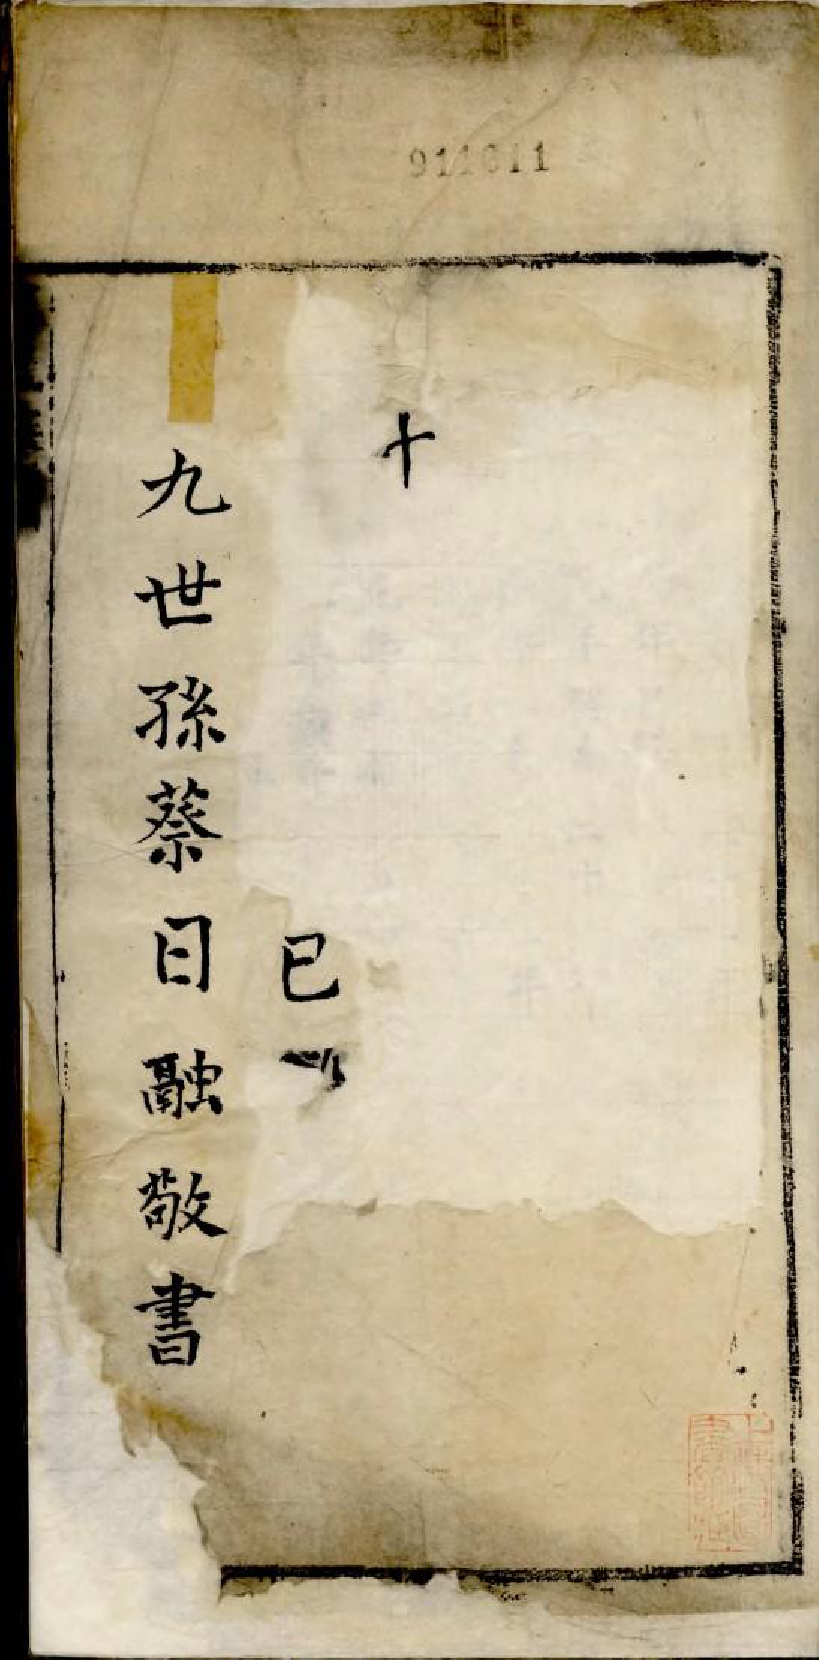 911611
十
已
九世孫蔡日融敬書